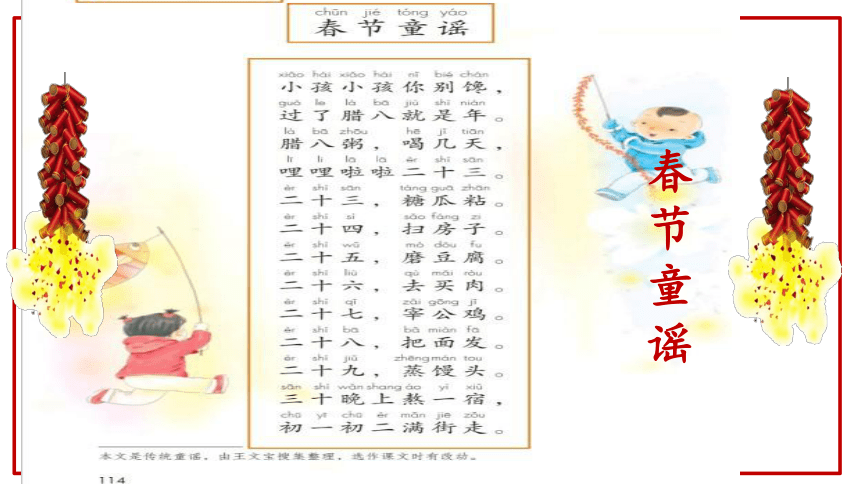 chūn jié tóng yáo
春节童谣
xiǎo hái xiǎo hái nǐ bié chán
小孩小孩你别馋，
guò le là bā jiù shì nián
过了腊八就是年。
là bā zhōu hē jǐ tiān
腊八粥，喝几天，
lī lī lā lā èr shí sān
哩哩啦啦二十三。
èr shí sān táng guā zhān
二十三，糖瓜粘。
èr shí sì sǎo fáng zi
二十四，扫房子。
èr shí wǔ mò dòu fu
二十五，磨豆腐。
èr shí liù qù mǎi ròu
二十六，去买肉。
èr shí qī zǎi gōng jī
二十七，宰公鸡。
èr shí bā bǎ miàn fā
二十八，把面发。
èr shí jiǔ zhēng mán tou
二十九，蒸馒头。
sān shí wǎn shang áo yì xiǔ
三十晚上熬一宿，
chū yī chū èr mǎn jiē zǒu
初一初二满街走。
本文是传统童谣，由王文宝搜集整理，选作课文时有改动。
114
春节童谣